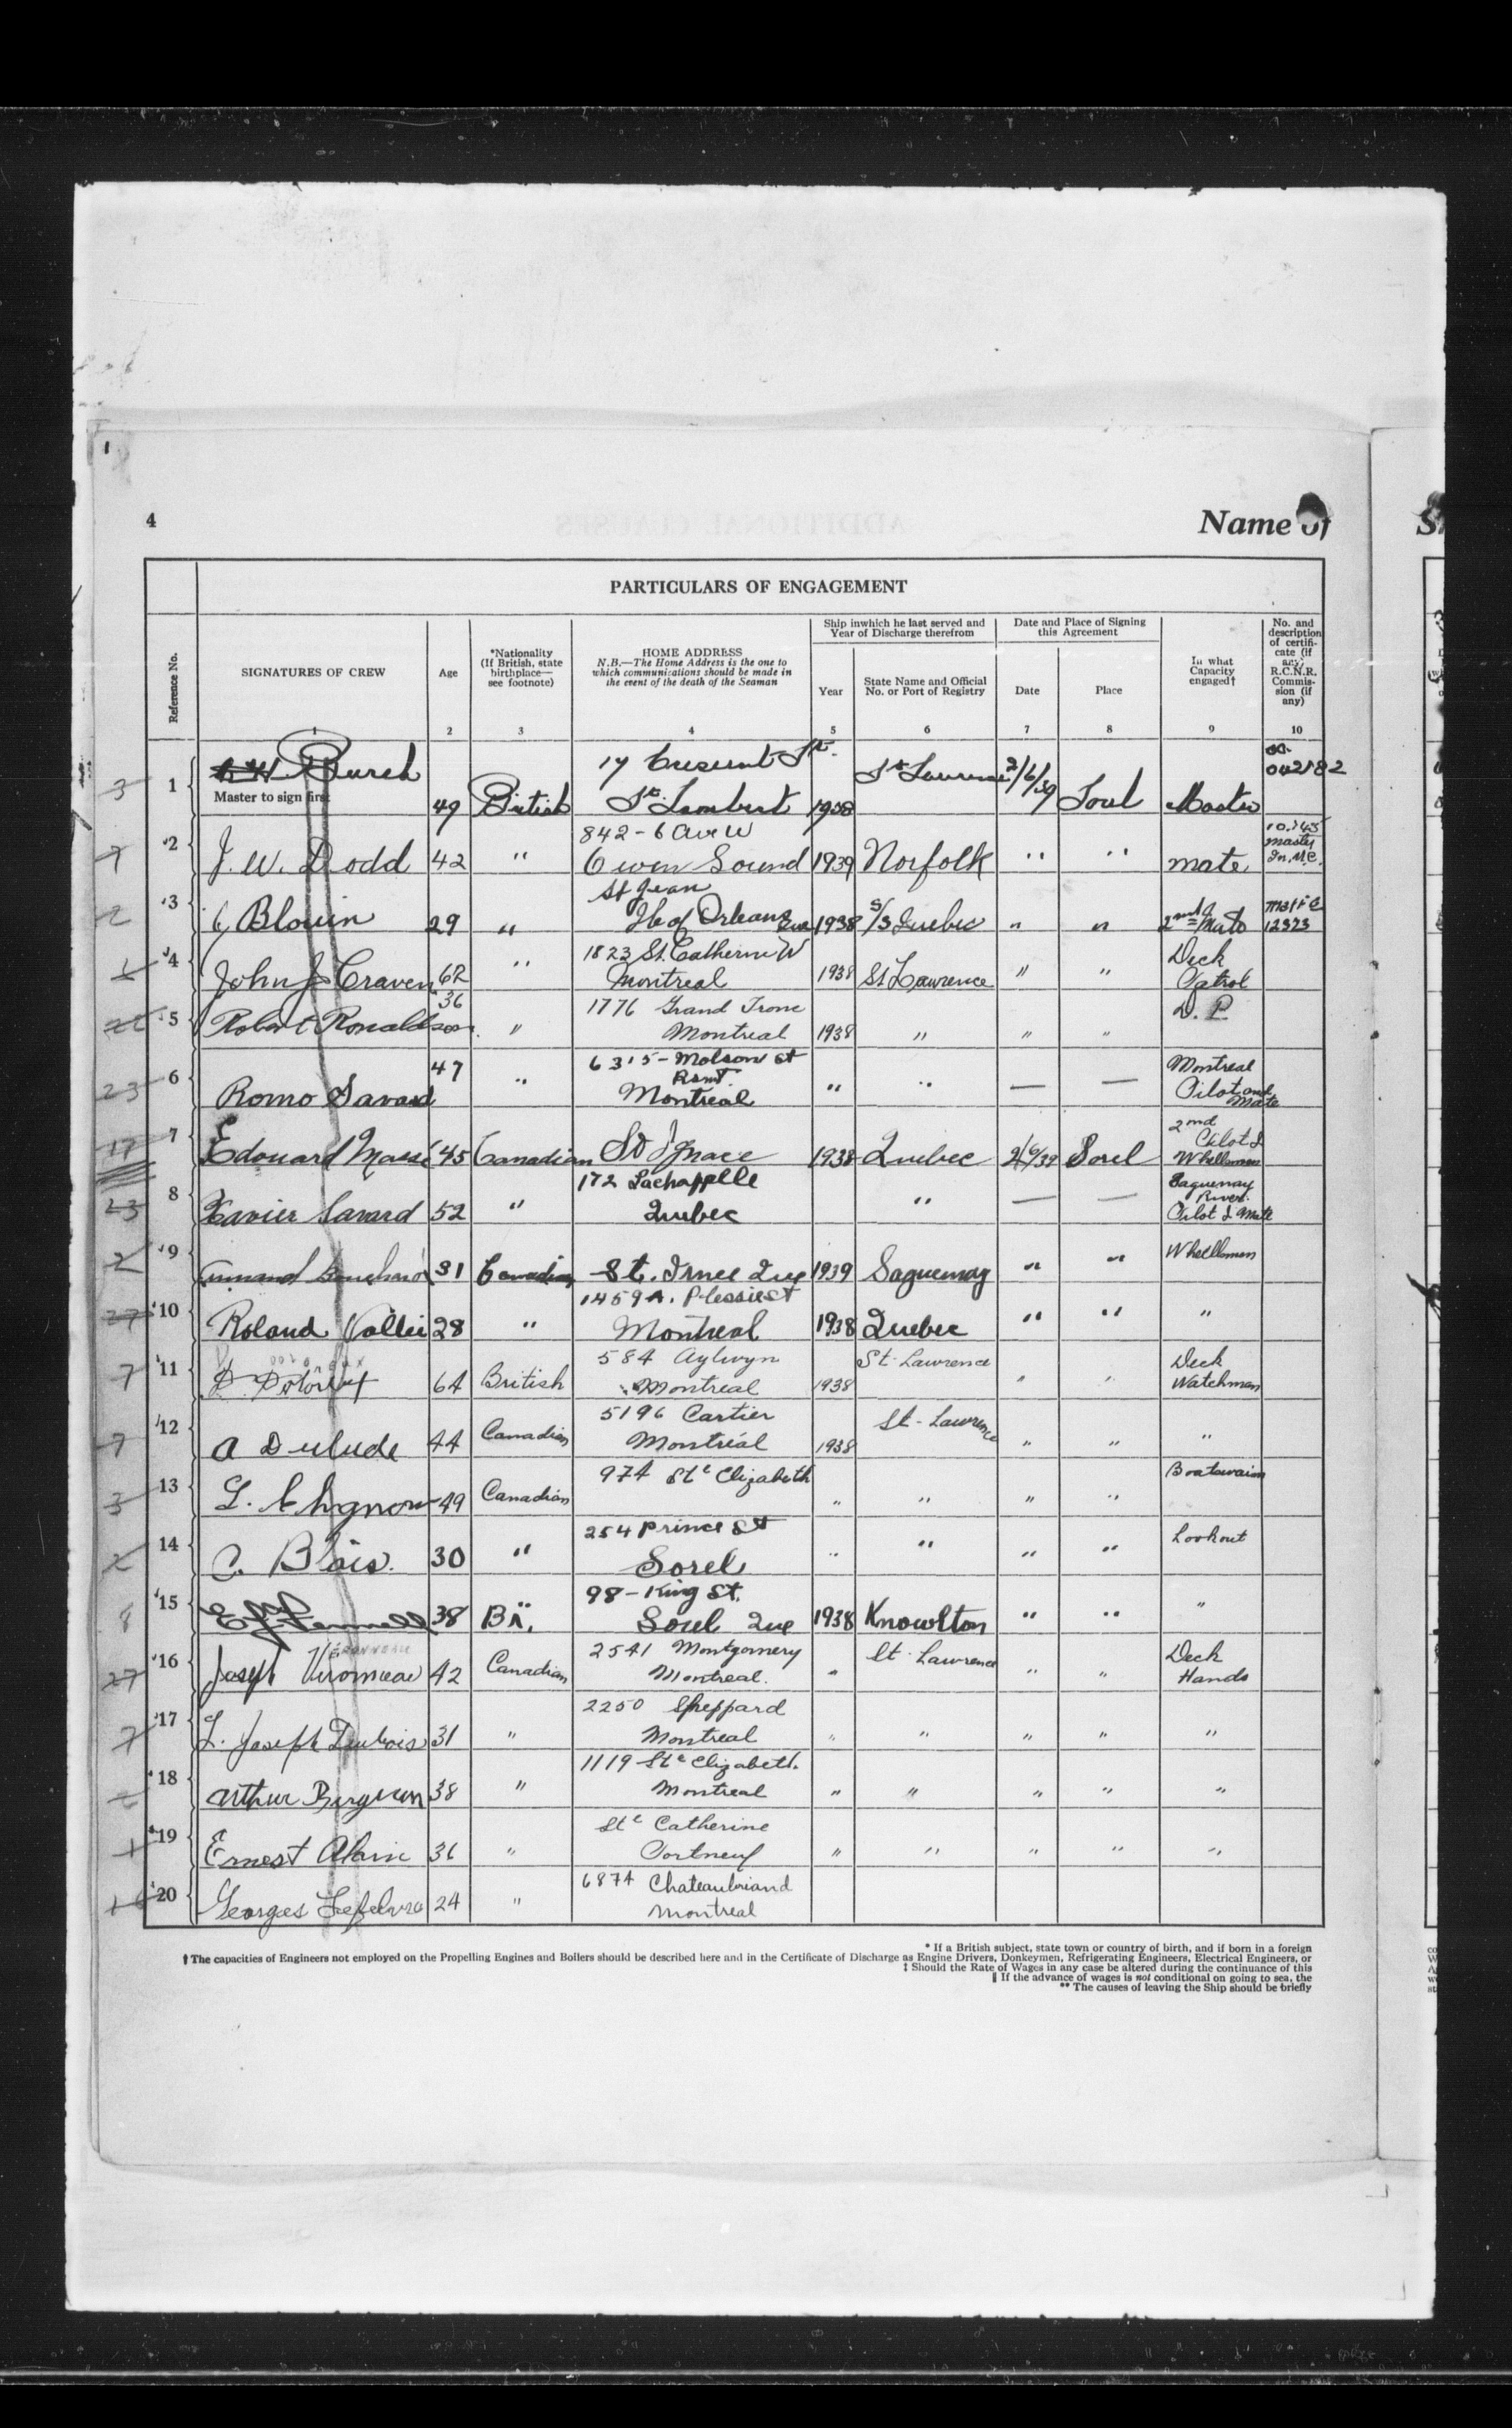 4
Name of
PARTICULARS OF ENGAGEMENT
Reference No.
SIGNATURES OF CREW
Age
*Nationality (If British, state birthplace— see footnote)
HOME ADDRESS
N.B.—The Home Address is the one to which communications should be made in the event of the death of the Seaman
Ship inwhich he last served and Year of Discharge therefrom
Year
State Name and Official No. or Port of Registry
Date and Place of Signing this Agreement
Date
Place
In what Capacity engaged†
No. and description of certificate (if any) R.C.N.R. Commission (if any)
1 2 3 4 5 6 7 8 9 10
3 1 Burch 49 British 17 Crescent St. St. Lambert 1938 St Lawrence 2/6/39 Sorel Master 042182
Master to sign first
7 2 J. W. Dodd 42 " 842 - 6 Ave W Owen Sound 1939 Norfolk " " mate
2 3 Blouin 29 " St Jean Ile of Orleans Que 1938 S/S Quebec " " 2nd Mate 12323
4 John J Craven 62 " 1823 St. Catherine W Montreal 1938 St Lawrence " " Deck Patrol
5 Robert Ronaldson 36 " 1776 Grand Tronc Montreal 1938 " " " D. P.
23 6 Romo Savard 47 " 6315 - Molson St Rsmt. Montreal " " — — Montreal Pilot and Mate
17 7 Edouard Massé 45 Canadian St Ignace 1938 Quebec 2/6/39 Sorel 2nd Pilot & Whellsman
8 Xavier Savard 52 " 172 Lachappelle Quebec " — — Saguenay River. Pilot & Mate
2 9 31 Canadian St. Irnee Que 1939 Saguenay " " Whellsman
27 10 Roland Vallée 28 " 1459 A. Plessis St Montreal 1938 Quebec " " "
7 11 64 British 584 Aylwyn Montreal 1938 St. Lawrence " " Deck Watchman
7 12 A Dulude 44 Canadian 5196 Cartier Montréal 1938 St - Lawrence " " "
3 13 L. Chignon 49 Canadian 974 Ste Elizabeth " " " " Boatswain
2 14 C. Blais. 30 " 254 Prince St Sorel " " " " Lookout
8 15 38 Br. 98 - King St. Sorel Que 1938 Knowlton " " "
27 16 Joseph Véronneau 42 Canadian 2541 Montgomery Montreal. " St. Lawrence " " Deck Hands
7 17 L. Joseph Dubois 31 " 2250 Sheppard Montreal " " " " "
18 Arthur Bergeron 38 " 1119 Ste Elizabeth. Montreal " " " " "
1 19 Ernest Alain 36 " Ste Catherine Portneuf " " " " "
20 Georges Lefebvre 24 " 6874 Chateaubriand Montreal
* If a British subject, state town or country of birth, and if born in a foreign
† The capacities of Engineers not employed on the Propelling Engines and Boilers should be described here and in the Certificate of Discharge as Engine Drivers, Donkeymen, Refrigerating Engineers, Electrical Engineers, or
‡ Should the Rate of Wages in any case be altered during the continuance of this
‖ If the advance of wages is not conditional on going to sea, the
** The causes of leaving the Ship should be briefly